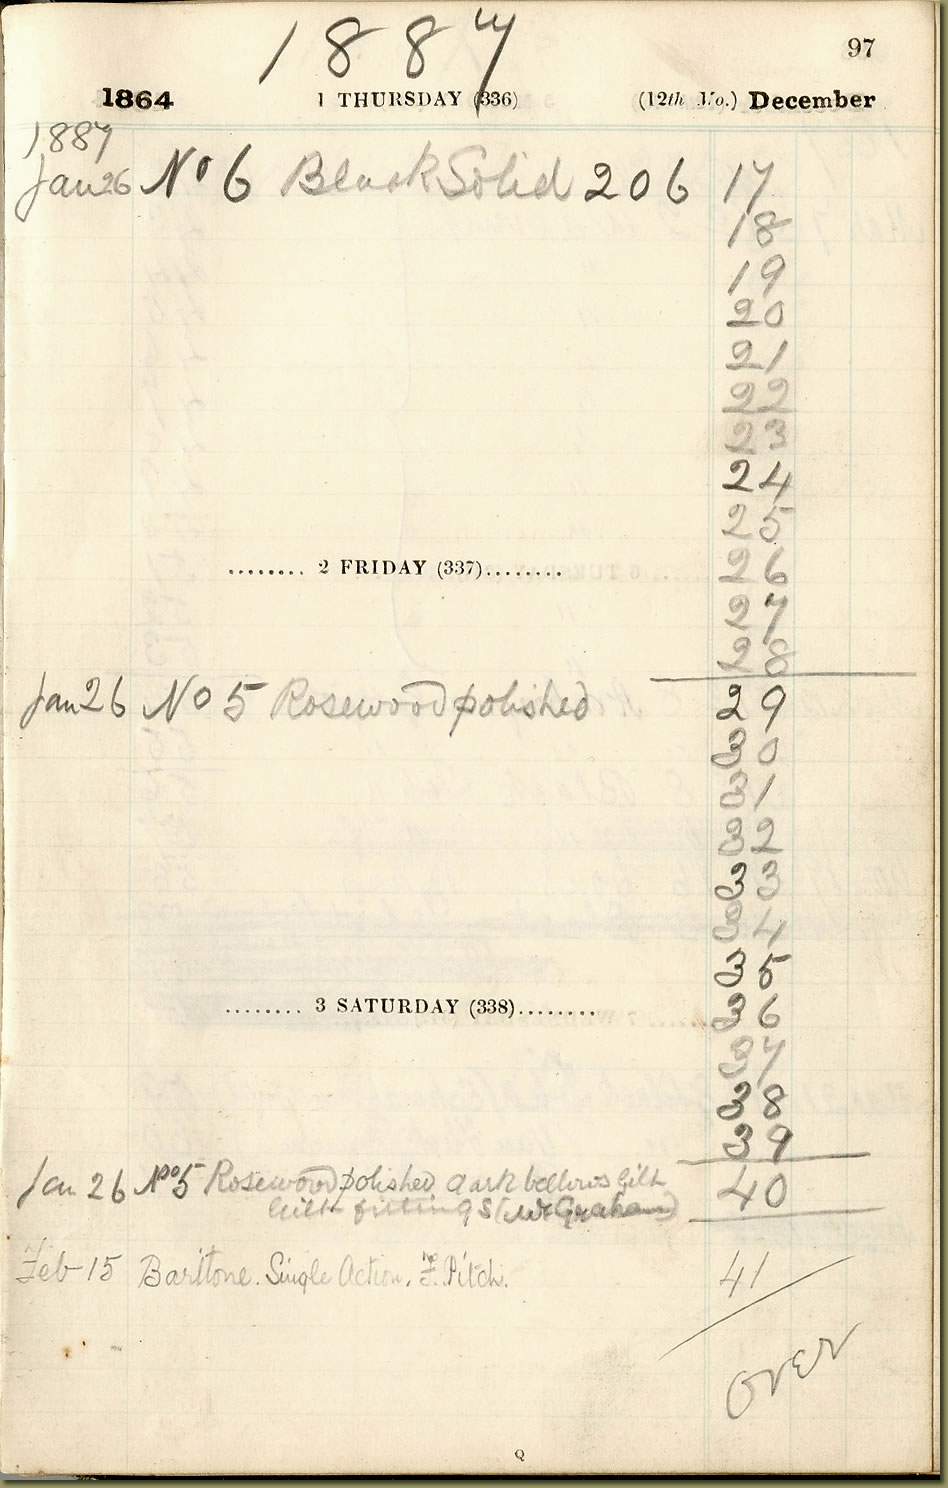 1887
97
1864 1 THURSDAY (336) (12th Mo.) December
1887
Jan 26 No 6 Black Solid 206 17
18
19
20
21
22
23
24
25
........ 2 FRIDAY (337)........ 26
27
28
Jan 26 No 5 Rosewood polished 29
30
31
32
33
34
35
........ 3 SATURDAY (338)........ 36
37
38
39
Jan 26 No 5 Rosewood polished dark bellows Gilt 40
Gilt fittings (Mr Graham)
Feb 15 Baritone. Single Action. F. Pitch. 41
OVER
Q